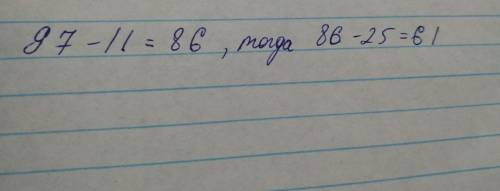 97 - 11 = 86, тогда 86 - 25 = 61